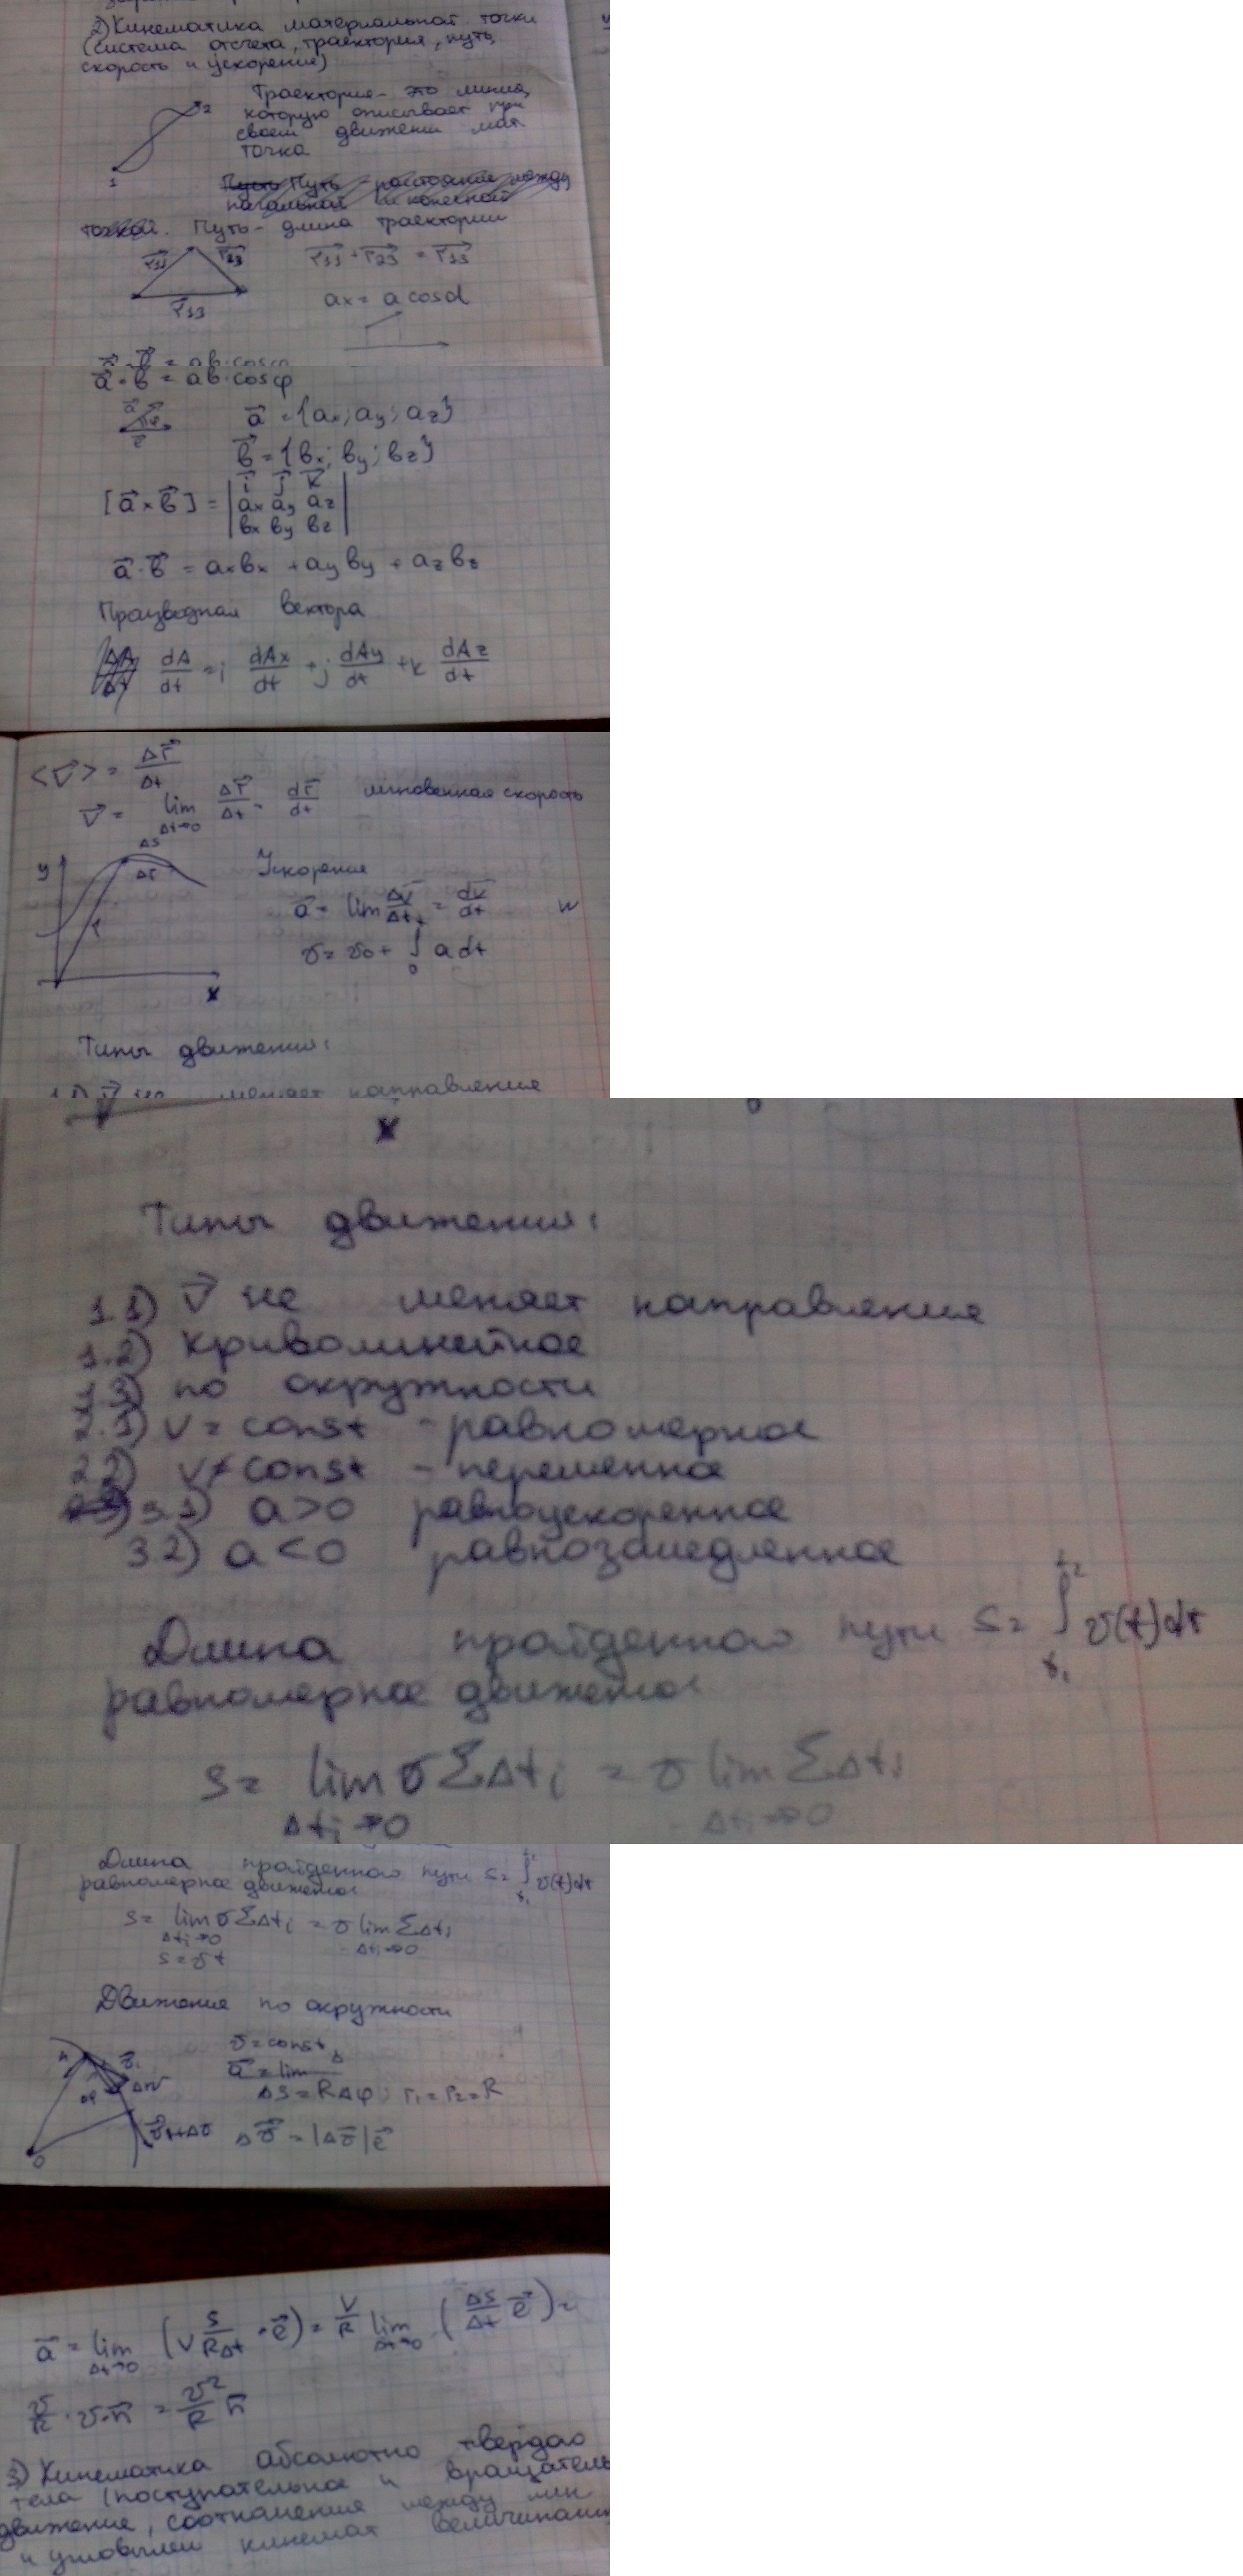 2) Кинематика материальной точки
(система отсчета, траектория, путь,
скорость и ускорение)
Траектория - это линия,
которую описывает при
своем движении мат
точка
1
2
Пусть Путь - расстояние между
начальной и конечной
точкой. Путь - длина траектории
r₁₂ r₂₃ r₁₂ + r₂₃ = r₁₃
r₁₃
ax = a cosα
a⃗·b⃗ = ab·cosφ
a⃗·b⃗ = ab·cosφ
a⃗ = {ax; ay; az}
b⃗ = {bx; by; bz}
i⃗ j⃗ k⃗
[a⃗×b⃗] = | ax ay az |
bx by bz
a⃗·b⃗ = axbx + ayby + azbz
Производная вектора
dA/dt = i dAx/dt + j dAy/dt + k dAz/dt
<v⃗> = Δr⃗/Δt
v⃗ = lim Δt→0 Δr⃗/Δt = dr⃗/dt мгновенная скорость
ΔS
y
Δr
r
x
Ускорение
a⃗ = lim Δv⃗/Δt = dv⃗/dt w
v = v₀ + ∫₀ᵗ a dt
Типы движения:
1.1) v⃗ не меняет направление
x
Типы движения:
1.1) v⃗ не меняет направление
1.2) криволинейное
1.3) по окружности
2.1) v = const - равномерное
2.2) v ≠ const - переменное
3.1) a > 0 равноускоренное
3.2) a < 0 равнозамедленное
Длина пройденного пути s = ∫ v(t)dt
t₂
t₁
равномерное движение
s = lim v ΣΔti = v lim ΣΔti
Δti→0 Δti→0
Длина пройденного пути s = ∫ v(t)dt
t₂
t₁
равномерное движение
s = lim v ΣΔti = v lim ΣΔti
Δti→0 Δti→0
s = vt
Движение по окружности
v = const
a⃗ = lim Δ
ΔS = RΔφ; r₁ = r₂ = R
Δv⃗ = |Δv⃗|e⃗
Δφ
Δv
v⃗+Δv
O
a⃗ = lim Δt→0 (v S/RΔt · e⃗) = v/R lim Δt→0 (ΔS/Δt e⃗) =
v/R · v·n⃗ = v²/R n⃗
3) Кинематика абсолютно твердого
тела (поступательное и вращатель
движение, соотношение между лин
и угловыми кинемат величинами